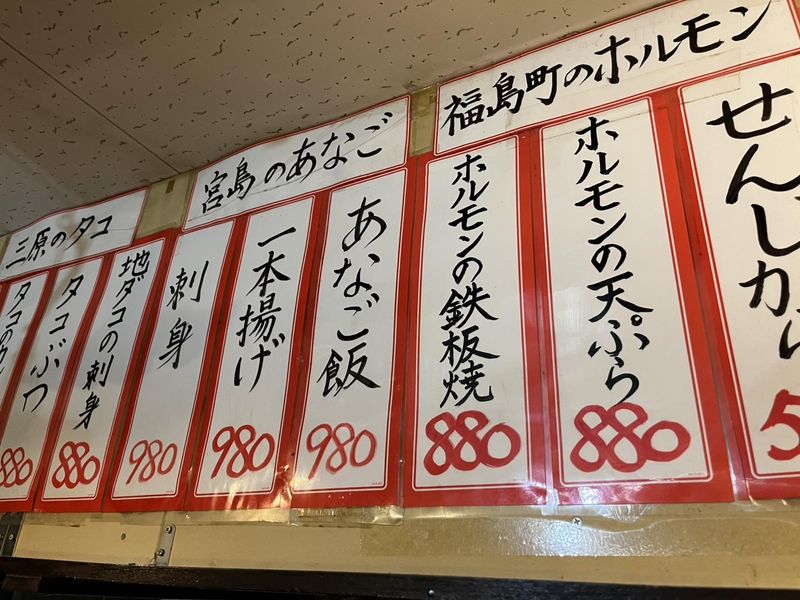 福島町のホルモン
せんじがら
ホルモンの天ぷら
880
ホルモンの鉄板焼
880
宮島のあなご
あなご飯
980
一本揚げ
980
刺身
980
三原のタコ
地ダコの刺身
880
タコぶつ
880
タコの
880